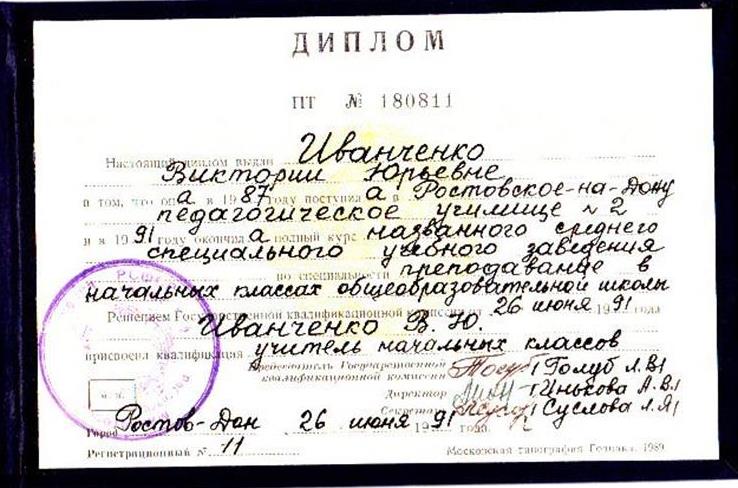 ДИПЛОМ
ПТ № 180811
Настоящий диплом выдан Иванченко
Виктории Юрьевне
в том, что он а в 1987 году поступил а в Ростовское-на-Дону
педагогическое училище № 2
и в 1991 году окончил а полный курс названного среднего
специального учебного заведения
по специальности преподавание в
начальных классах общеобразовательной школы
Решением Государственной квалификационной комиссии от 26 июня 1991 года
Иванченко В. Ю.
присвоена квалификация учитель начальных классов
Председатель Государственной
квалификационной комиссии /Голуб Л.В/
Директор /Инькова А.В/
Секретарь /Суслова Л.Я/
М. П.
Город Ростов-Дон 26 июня 1991 года.
Регистрационный № 11
Московская типография Гознака. 1989.